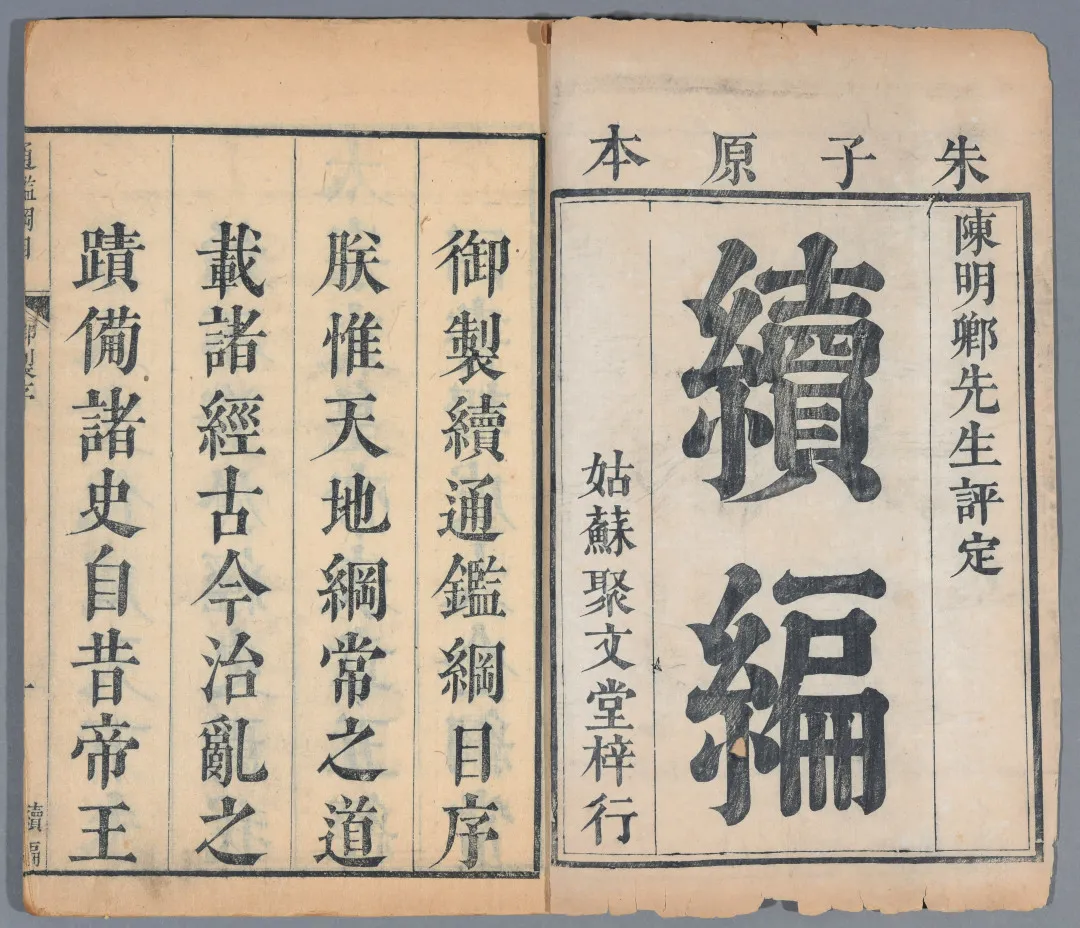 朱子原本
陳明卿先生評定
續編
姑蘇聚文堂梓行
御製續通鑑綱目序
朕惟天地綱常之道
載諸經古今治亂之
蹟備諸史自昔帝王
通鑑綱目
御製序
一
續編